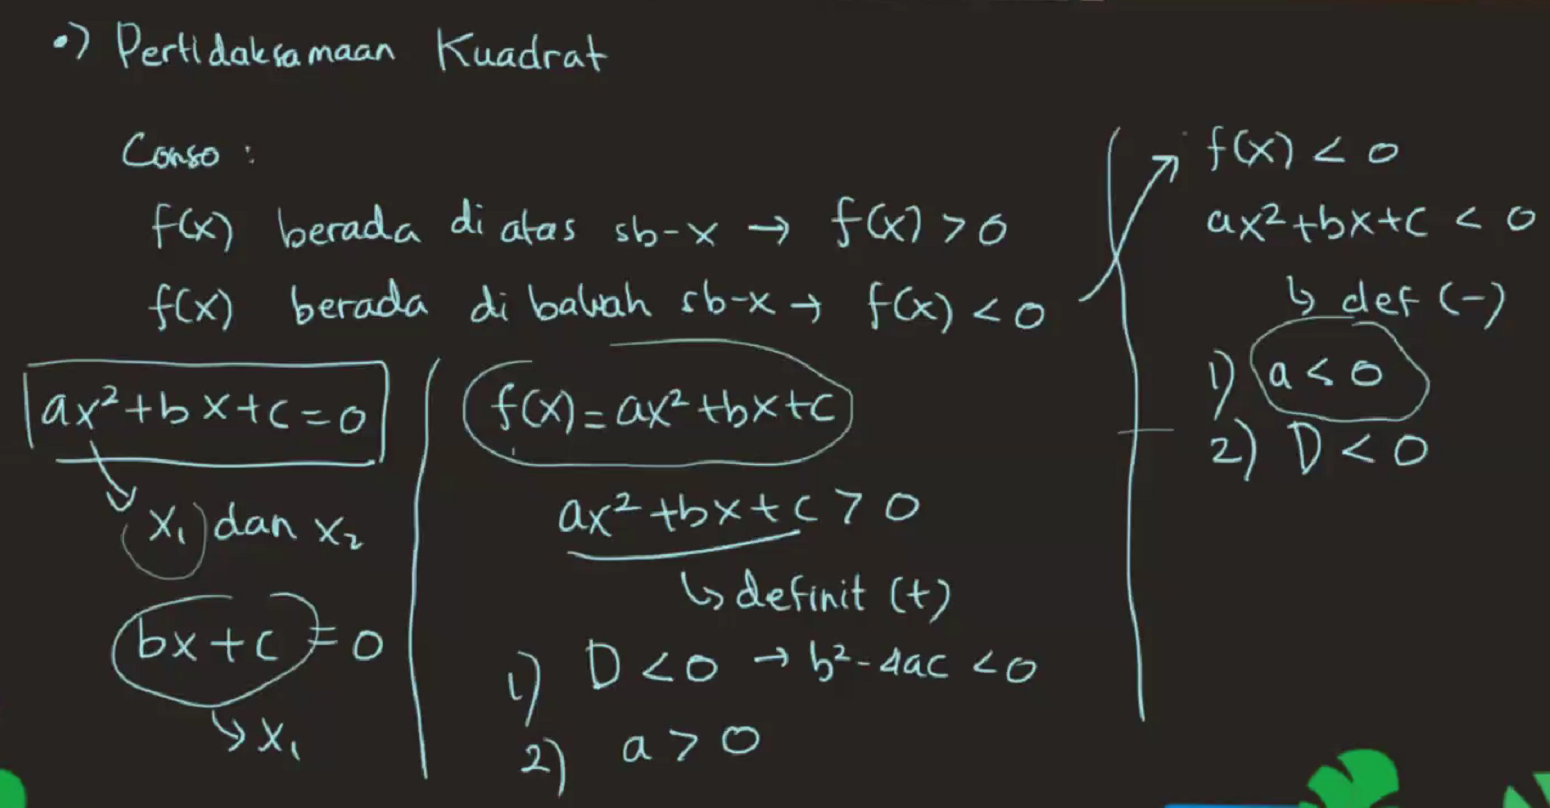 •) Pertidaksamaan Kuadrat
Conso :
f(x) berada di atas sb-x → f(x) > 0
f(x) berada di bawah sb-x → f(x) < 0
ax²+bx+c=0
x₁ dan x₂
bx+c=0
↳ x₁
f(x)=ax²+bx+c
ax²+bx+c > 0
↳ definit (+)
1) D<0 → b²-4ac <0
2) a > 0
f(x) < 0
ax²+bx+c < 0
↳ def (-)
1) a < 0
2) D < 0